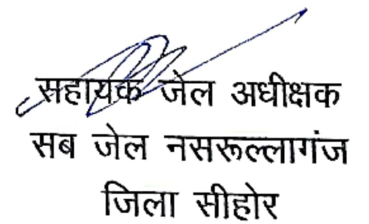 सहायक जेल अधीक्षक
सब जेल नसरूल्लागंज
जिला सीहोर